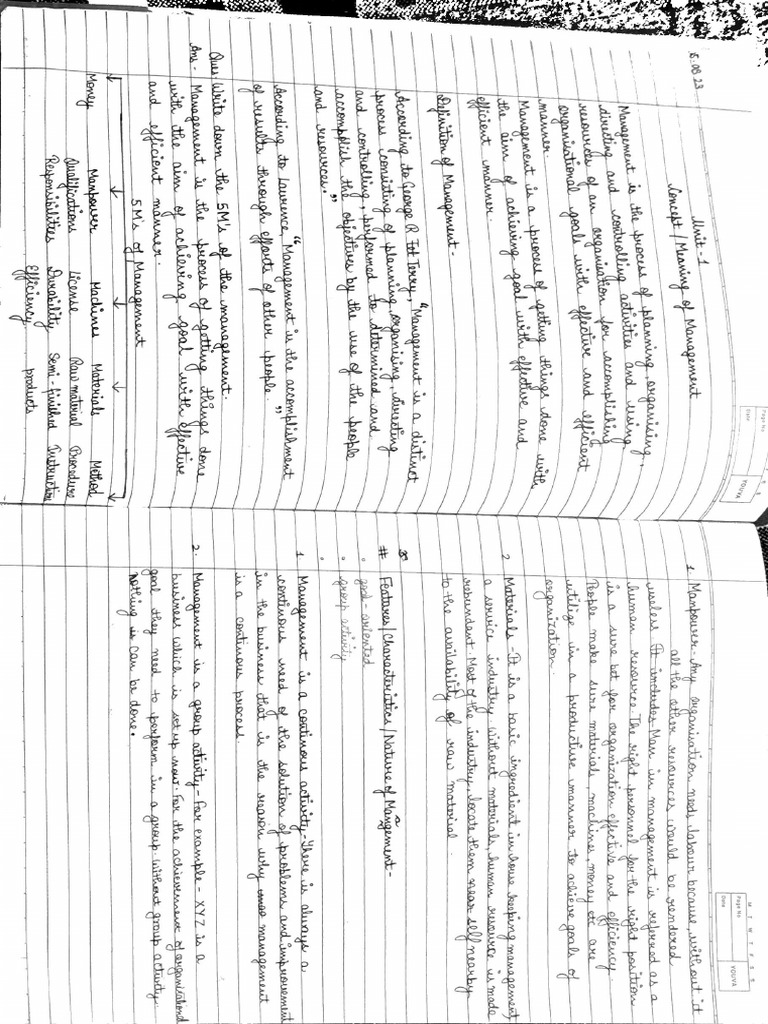 8.08.23
Page No.
Date
YOUVA
Unit-1
Concept / Meaning of Management
Management is the process of planning, organising,
directing and controlling activities and using
resources of an organisation for accomplishing
organisational goals with effective and efficient
manner.
Management is a process of getting things done with
the aim of achieving goal with effective and
efficient manner.
Definition of Management -
According to George R Tot Terry, "Management is a distinct
process consisting of planning, organising, directing
and controlling, performed to determined and
accomplish the objectives by the use of the people
and resources."
According to Laurence, "Management is the accomplishment
of results through efforts of other people."
Ques: Write down the 5M's of the management.
Ans - Management is the process of getting things done
with the aim of achieving goal with effective
and efficient manner.
5 M's of Management
Money Manpower Machines Materials Method
Qualifications License Raw material Procedure
Responsibilities Durability Semi-finished Instruction
Efficiency products
M T W T F S S
Page No.
Date
YOUVA
1 Manpower - Any organisation needs labour because, without it
all the other resources would be rendered
useless. It includes Man in management is referred as a
human resource. The right personnel for the right position
is a sure bet for organization effective and efficiency.
People make sure materials, machines, money etc are
utilize in a productive manner to achieve goals of
organization.
2 Materials - It is a basic ingredient in house keeping management
a service industry. Without materials, human resource is made
redundent. Most of the industry, locate them near self nearby
to the availability of raw material.
# Features / Characteristics / Nature of Mangement -
• goal-oriented
• group activity
•
1 Management is a continuous activity - There is always a
continuous need of the solution of problems and improvement
in the business that is the reason why management
is a continuous process.
2. Management is a group activity - For example - XYZ is a
business which is set up now. For the achievement of organisational
goal they need to perform in a group. Without group activity
nothing is can be done.